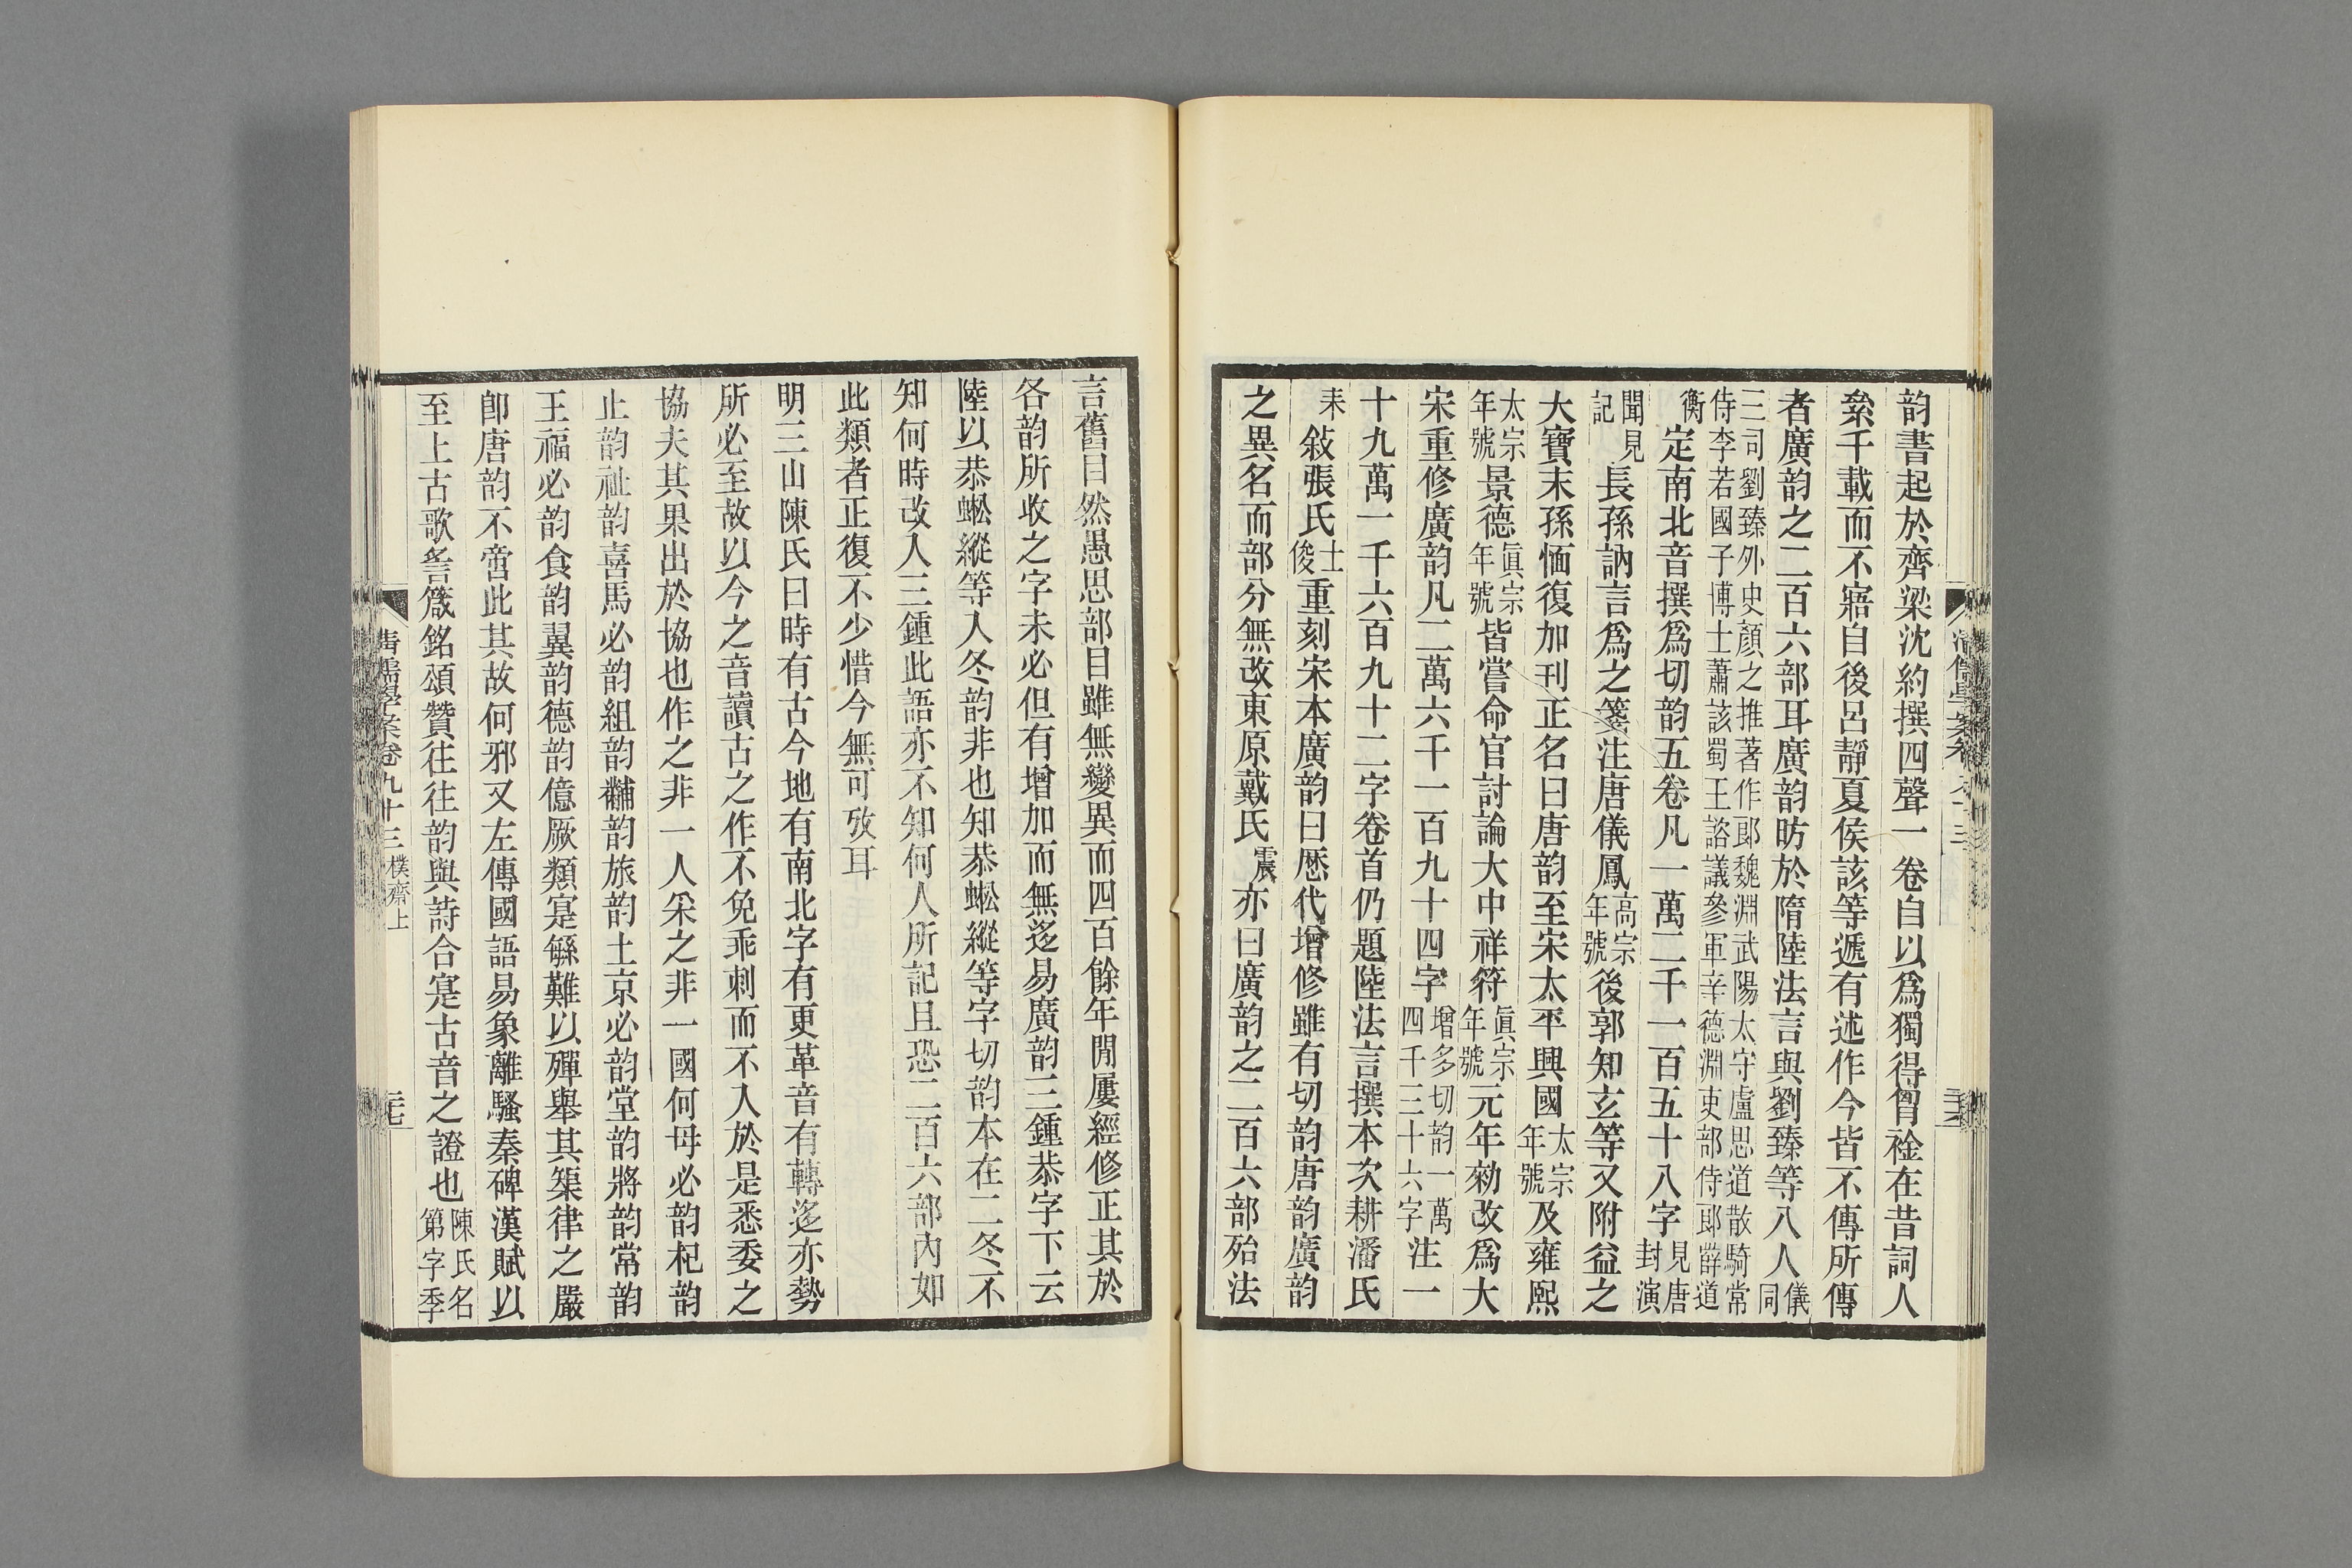 韵書起於齊梁沈約撰四聲一卷自以爲獨得胷襟在昔詞人
絫千載而不寤自後呂靜夏侯該等遞有述作今皆不傳所傳
者廣韵之二百六部耳廣韵昉於隋陸法言與劉臻等八人儀同
三司劉臻外史顏之推著作郎魏淵武陽太守盧思道散騎常侍李若國子博士蕭該蜀王諮議參軍辛德淵吏部侍郎薛道
衡定南北音撰爲切韵五卷凡一萬二千一百五十八字見唐封演
聞見記長孫訥言爲之箋注唐儀鳳高宗年號後郭知玄等又附益之
大寶末孫愐復加刊正名曰唐韵至宋太平興國太宗年號及雍熙
太宗年號景德眞宗年號皆嘗命官討論大中祥符眞宗年號元年勑改爲大
宋重修廣韵凡二萬六千一百九十四字增多切韵一萬四千三十六字注一
十九萬一千六百九十二字卷首仍題陸法言撰本次耕潘氏
耒敍張氏士俊重刻宋本廣韵曰厯代增修雖有切韵唐韵廣韵
之異名而部分無改東原戴氏震亦曰廣韵之二百六部殆法
言舊目然愚思部目雖無變異而四百餘年閒屢經修正其於
各韵所收之字未必但有增加而無迻易廣韵三鍾恭字下云
陸以恭蜙縱等入冬韵非也知恭蜙縱等字切韵本在二冬不
知何時改入三鍾此語亦不知何人所記且恐二百六部內如
此類者正復不少惜今無可攷耳
明三山陳氏曰時有古今地有南北字有更革音有轉迻亦勢
所必至故以今之音讀古之作不免乖刺而不入於是悉委之
協夫其果出於協也作之非一人采之非一國何母必韵杞韵
止韵祉韵喜馬必韵組韵黼韵旅韵土京必韵堂韵將韵常韵
王福必韵食韵翼韵德韵億厥類寔緐難以殫舉其榘律之嚴
卽唐韵不啻此其故何邪又左傳國語易象離騷秦碑漢賦以
至上古歌謠箴銘頌贊往往韵與詩合寔古音之證也陳氏名第字季
清儒學案卷九十三 樸齋上 二七